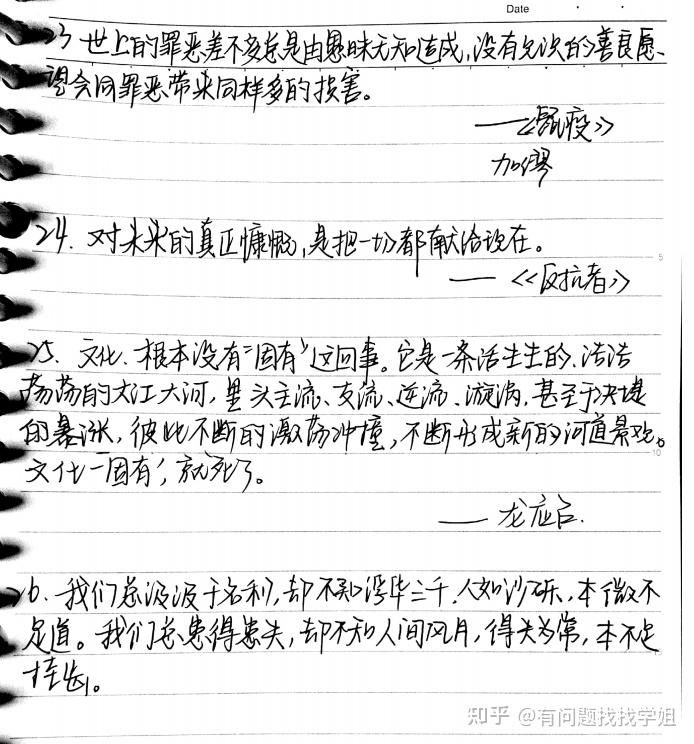 Date
23 世上的罪恶差不多总是由愚昧无知造成,没有见识的善良愿
望会同罪恶带来同样多的损害。
——《鼠疫》
加缪
24. 对未来的真正慷慨,是把一切都献给现在。
5
——《反抗者》
25. 文化、根本没有“固有”这回事。它是一条活生生的、浩浩
荡荡的大江大河,里头主流、支流、逆流、漩涡、甚至于决堤
的暴涨,彼此不断的激荡冲撞,不断形成新的河道景观。
10
文化一“固有”,就死了。
—— 龙应台.
26. 我们总汲汲于名利,却不知浮华三千,人如沙砾,本微不
足道。我们总患得患失,却不知人间风月,得失为常,本不足
挂齿。
知乎 @有问题找找学姐